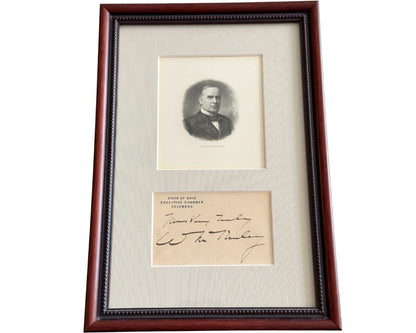 STATE OF OHIO
EXECUTIVE CHAMBER
COLUMBUS
Yours Very Truly
W McKinley